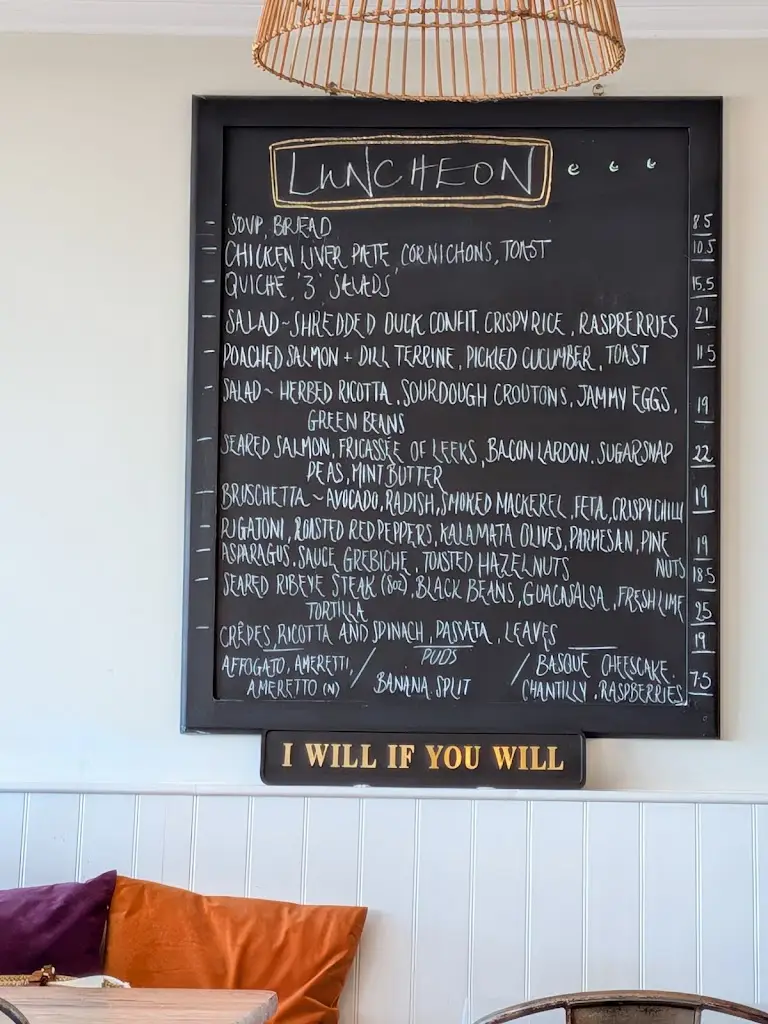 LUNCHEON
SOUP, BREAD 8.5
CHICKEN LIVER PATE, CORNICHONS, TOAST 10.5
QUICHE, '3' SALADS 15.5
SALAD ~ SHREDDED DUCK CONFIT, CRISPY RICE, RASPBERRIES 21
POACHED SALMON + DILL TERRINE, PICKLED CUCUMBER, TOAST 11.5
SALAD ~ HERBED RICOTTA, SOURDOUGH CROUTONS, JAMMY EGGS, 19
GREEN BEANS
SEARED SALMON, FRICASSÉE OF LEEKS, BACON LARDON, SUGARSNAP 22
PEAS, MINT BUTTER
BRUSCHETTA ~ AVOCADO, RADISH, SMOKED MACKEREL, FETA, CRISPY CHILLI 19
RIGATONI, ROASTED RED PEPPERS, KALAMATA OLIVES, PARMESAN, PINE 19
NUTS
ASPARAGUS, SAUCE GREBICHE, TOASTED HAZELNUTS 18.5
SEARED RIBEYE STEAK (8oz), BLACK BEANS, GUACASALSA, FRESH LIME 25
TORTILLA
CRÊPES, RICOTTA AND SPINACH, PASSATA, LEAVES 19
PUDS
AFFOGATO, AMERETTI, / BANANA SPLIT / BASQUE CHEESCAKE. 7.5
AMERETTO (N) CHANTILLY. RASPBERRIES
I WILL IF YOU WILL